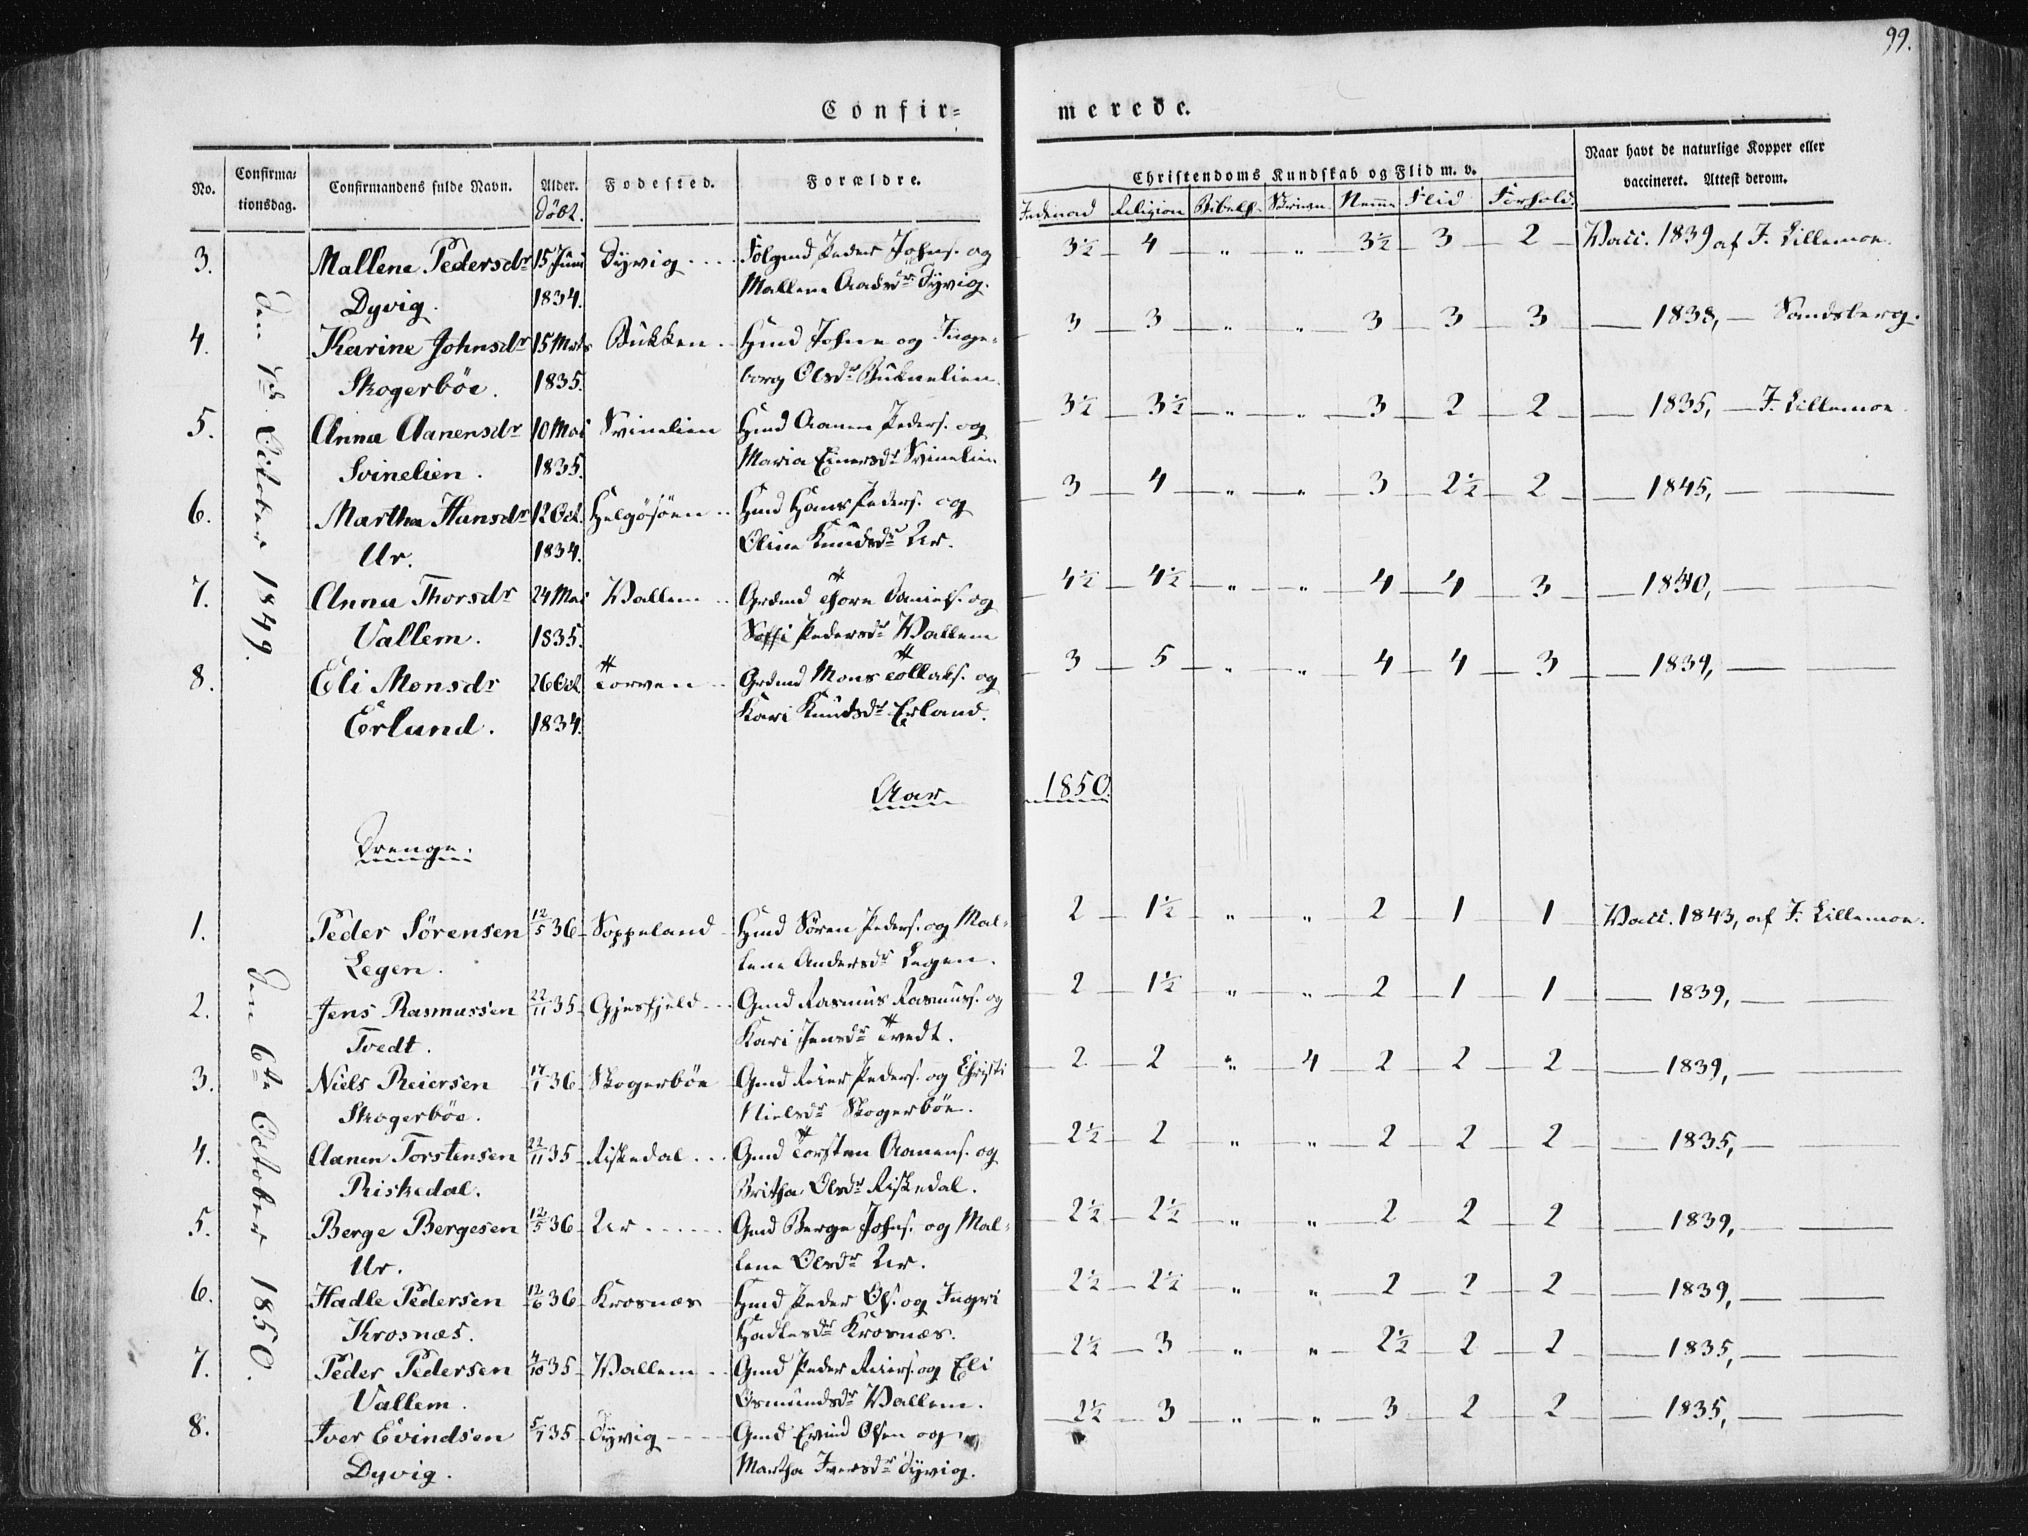 99.
Confir= merede.
No. Confirma= tionsdag. Confirmandens fulde Navn. Alder. døbt. Fødested. Forældre. Christendoms Kundskab og Flid m. v. Naar havt de naturlige Kopper eller
vaccineret. Attest derom.
Religion Nemme Flid Forhold
den October 1849.
3. Mallene Pedersdr 15 Juni Dyvig Peder Johns. og 3½ 4 " " 3½ 3 2 Vacc. 1839 af F. Lillemoe.
Dyvig. 1834. Mallene Aadsdr Dyvig.
4. Karine Johnsdr 15 Marts Bukken Hmd Johne og Inge= 3 3 " " 3 3 3 — 1838, — Sandsberg.
Skogerbøe. 1835. borg Olsdr Buknelien.
5. Anna Aanensdr 10 Mai Svinelien Hmd Aanen Peders. og 3½ 3½ " " 3 2 2 — 1835, — F. Lillemoe.
Svinelien. 1835. Maria Einersdr Svinelien
6. Martha Hansdr 12 Oct. Helgøsøen Hmd Hans Peders. og 3 4 " " 3 2½ 2 — 1845, —
Ur. 1834. Oline Knudsdr Ur.
7. Anna Thorsdr 24 Mai Vallem Grdmd Thore Daniels. og 4½ 4½ " " 4 4 3
Vallem. 1835. Soffi Pedersdr Vallem
8. Eli Monsdr 26 Oct. Torven Grdmd Mons Tollaks. og 3 5 " " 4 4 3 — 1839, —
Erland. 1834. Kari Knudsdr Erland.
Aar 1850.
Drenge.
Den 6te October 1850.
1. Peder Sørensen 12/5 36 Soppeland Hmd Søren Peders. og Mal= 2 1½ " " 2 1 1 Vacc. 1843, af F. Lillemoe.
Legen. lene Andersdr Legen.
2. Jens Rasmussen 22/11 35 Gjesfjeld Gmd Rasmus Rasmuss. og 2 1½ " " 2 1 1 — 1839, —
Tvedt. Kari Jensdr Tvedt.
3. Niels Reiersen 17/1 36 Skogerbøe Gmd Reier Peders. og Christi 2 2 " 4 2 2 2 — 1839, —
Skogerbøe. Nielsdr Skogerbøe.
4. Aanen Torstensen 22/11 35 Riskedal Gmd Torsten Aanens. og 2½ 2 " " 2 2 2 — 1835, —
Riskedal. Britha Olsdr Riskedal.
5. Berge Bergesen 12/5 36 Ur Gmd Berge Johns. og Mal= 2½ 2½ " " 2 2 2 — 1839, —
Ur. lene Olsdr Ur.
6. Hadle Pedersen 12/6 36 Krosnæs Hmd Peder Ols. og Ingri 2½ 2½ " " 2 2 2 — 1839, —
Krosnæs. Hadlesdr Krosnæs.
7. Peder Pedersen 4/10 35 Vallem Gmd Peder Reiers. og Eli 2½ 3 " " 2½ 2 2 — 1835, —
Vallem. Osmundsdr Vallem.
8. Iver Evindsen 5/7 35 Dyvig Gmd Evind Olsen og 2½ 3 " " 3 2 2 — 1835, —
Dyvig. Martha Iversdr Dyvig.